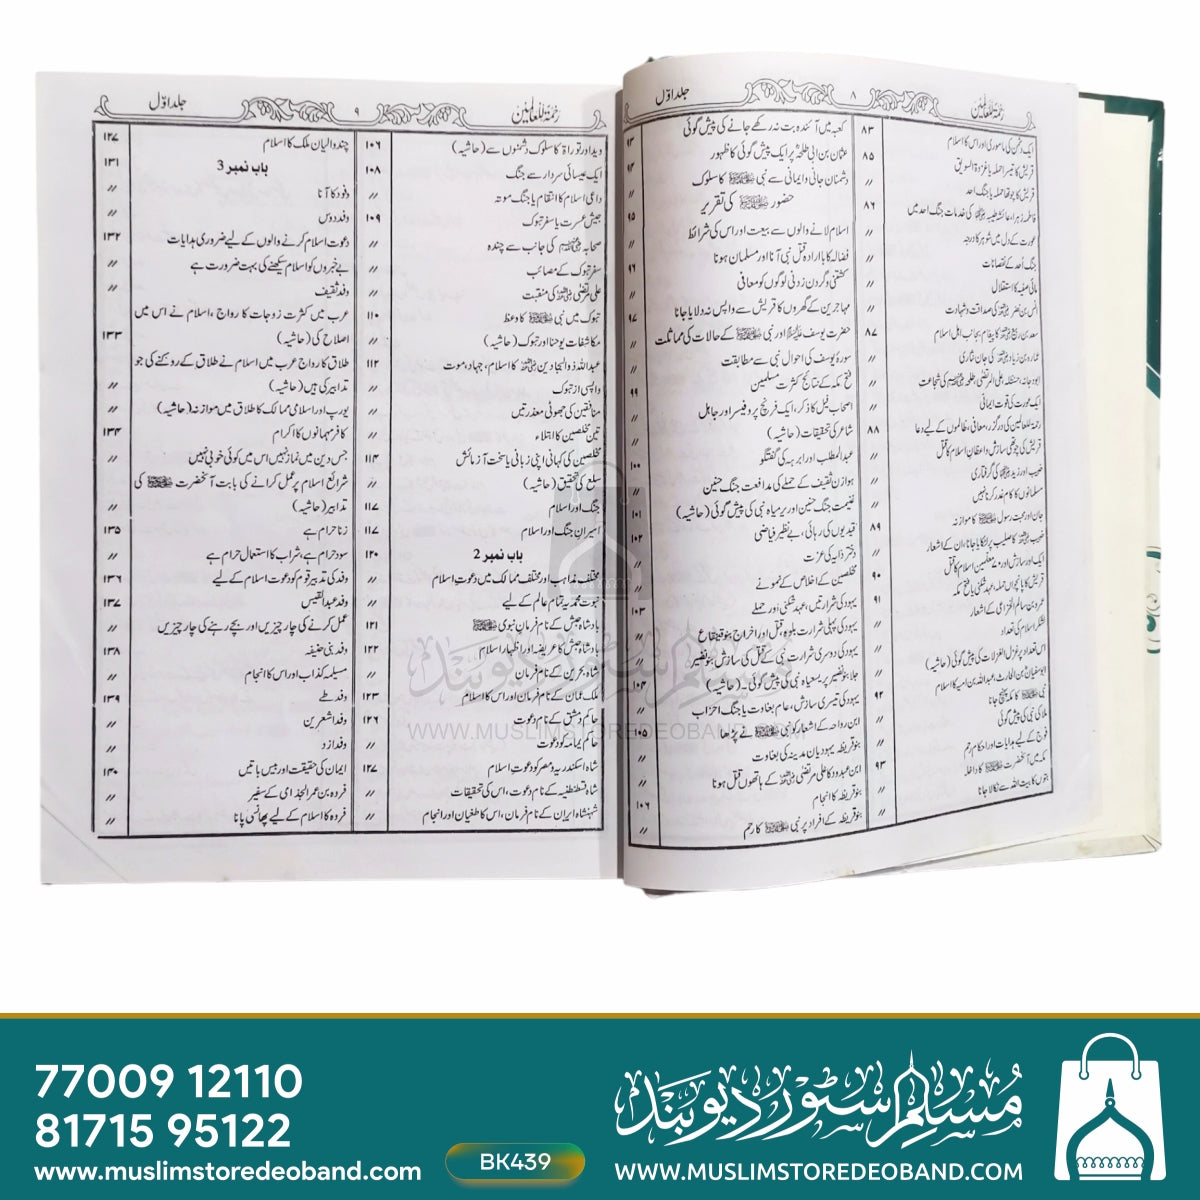 رحمۃ للعالمین ۸ جلد اوّل
ایک دشمن کی ماموری اور اس کا اسلام ۸۳
قریش کا تیسرا حملہ یا غزوۃ السویق ۸۵
قریش کا چوتھا حملہ یا جنگ احد //
فاطمہ زہرا، عائشہ طیبہ کی خدمات جنگ احد میں ۸۶
عورت کے دل میں شوہر کا درجہ //
جنگ اُحد کے نقصانات //
مائی صفیہ کا استقلال //
انس بن نضر کی صداقت و شہادت //
سعد بن ربیع کا پیغام بجانب اہل اسلام ۸۷
عمارہ بن زیاد کی جان نثاری //
ابو دجانہ، حنظلہ، علی المرتضیٰ، طلحہ کی شجاعت //
ایک عورت کی قوت ایمانی //
رحمۃ للعالمین کی درگزر، معافی، ظالموں کے لیے دعا ۸۸
خبیب اور زید کی گرفتاری //
مسلمانوں کا کام غدر کرنا نہیں //
جان اور محبت رسول کا موازنہ ۸۹
عمرو بن سالم الخزاعی کے اشعار //
لشکر اسلام کی تعداد //
نبی کا مکہ پہنچ جانا
ملاکی نبی کی پیش گوئی //
فوج کے لیے ہدایات اور احکام رحم //
مکہ میں آنحضرت کا داخلہ ۹۳
بتوں کا بیت اللہ سے نکالا جانا
کعبہ میں آئندہ بت نہ رکھے جانے کی پیش گوئی ۹۳
عثمان بن ابی طلحہ پر ایک پیش گوئی کا ظہور ۹۴
دشمنان جانی و ایمانی سے نبی کا سلوک //
حضور ﷺ کی تقریر //
اسلام لانے والوں سے بیعت اور اس کی شرائط ۹۵
فضالہ کا با ارادہ قتل نبی آنا اور مسلمان ہونا //
کشتنی و گردن زدنی لوگوں کو معافی ۹۶
مہاجرین کے گھروں کا قریش سے واپس نہ دلایا جانا //
حضرت یوسف علیہ السلام اور نبی ﷺ کے حالات کی مماثلت ۹۷
سورۂ یوسف کی احوال نبی سے مطابقت //
فتح مکہ کے نتائج کثرت مسلمین //
اصحاب فیل کا ذکر، ایک فرنچ پروفیسر اور جاہل ۹۹
شاعر کی تحقیقات (حاشیہ) //
عبد المطلب اور ابرہہ کی گفتگو //
ہوازن ثقیف کے حملے کی مدافعت جنگ حنین ۱۰۰
غنیمت جنگ حنین اور یرمیاہ نبی کی پیش گوئی (حاشیہ) //
قیدیوں کی رہائی، بے نظیر فیاضی ۱۰۱
دختر دایہ کی عزت ۱۰۲
مخلصین کے اخلاص کے نمونے //
یہود کی شرارتیں، عہد شکنی اور حملے //
یہود کی پہلی شرارت بلوہ، قتل اور اخراج بنو قینقاع ۱۰۳
یہود کی دوسری شرارت نبی کے قتل کی سازش بنو نضیر //
جلا بنو نضیر پر یسعیاہ نبی کی پیش گوئی۔ (حاشیہ) //
یہود کی تیسری سازش، عام بغاوت یا جنگ احزاب ۱۰۴
ابن رواحہ کے اشعار کو نبی ﷺ نے پڑھا //
بنو قریظہ یہودیان مدینہ کی بغاوت ۱۰۵
ابن عبدود کا علی مرتضیٰ کے ہاتھوں قتل ہونا //
بنو قریظہ کا انجام ۱۰۶
بنو قریظہ کے افراد پر نبی ﷺ کا رحم //
رحمۃ للعالمین ۹ جلد اوّل
وید اور توراۃ کا سلوک دشمنوں سے (حاشیہ) ۱۰۶
ایک عیسائی سردار سے جنگ ۱۰۸
داعی اسلام کا انتقام یا جنگ موتہ //
جیش عسرت یا سفر تبوک ۱۰۹
صحابہ کی جانب سے چندہ //
سفر تبوک کے مصائب //
علی مرتضیٰ کی منقبت //
تبوک میں نبی ﷺ کا وعظ ۱۱۰
مکاشفات یوحنا اور تبوک (حاشیہ) //
عبد اللہ ذوالبجادین کا اسلام، جہاد، موت ۱۱۲
واپسی از تبوک //
منافقین کی جھوٹی معذرتیں //
تین مخلصین کا ابتلاء //
مخلصین کی کہانی اپنی زبانی یا سخت آزمائش ۱۱۴
سلع کی تحقیق (حاشیہ) //
جنگ اور اسلام ۱۱۷
اسیران جنگ اور اسلام ۱۱۷
باب نمبر 2 ۱۲۰
مختلف مذاہب اور مختلف ممالک میں دعوتِ اسلام //
نبوت محمدیہ تمام عالم کے لیے //
بادشاہ حبش کے نام فرمان نبوی ﷺ ۱۲۱
بادشاہ حبش کا عریضہ اور اظہار اسلام ۱۲۲
شاہ بحرین کے نام فرمان //
ملک عمان کے نام فرمان اور اس کا اسلام ۱۲۳
حاکم دمشق کے نام دعوت ۱۲۶
حاکم یمامہ کو دعوت //
شاہ اسکندریہ و مصر کو دعوت اسلام ۱۲۷
شاہ قسطنطنیہ کے نام دعوت، اس کی تحقیقات //
شہنشاہ ایران کے نام فرمان، اس کا طغیان اور انجام //
چند والیان ملک کا اسلام ۱۲۷
باب نمبر 3 ۱۳۱
وفود کا آنا //
وفد دوس //
دعوت اسلام کرنے والوں کے لیے ضروری ہدایات ۱۳۲
بے خبروں کو اسلام سیکھنے کی بہت ضرورت ہے //
وفد ثقیف //
عرب میں کثرت زوجات کا رواج، اسلام نے اس میں
اصلاح کی (حاشیہ) ۱۳۳
طلاق کا رواج عرب میں اسلام نے طلاق کے روکنے کی جو
تدابیر کی ہیں (حاشیہ) //
یورپ اور اسلامی ممالک کا طلاق میں موازنہ (حاشیہ) //
کافر مہمانوں کا اکرام ۱۳۴
جس دین میں نماز نہیں اس میں کوئی خوبی نہیں //
شرائع اسلام پر عمل کرانے کی بابت آنحضرت ﷺ کی
تدابیر (حاشیہ) //
زنا حرام ہے ۱۳۵
سود حرام ہے، شراب کا استعمال حرام ہے //
وفد کی تدبیر قوم کو دعوت اسلام کے لیے ۱۳۶
وفد عبد القیس ۱۳۷
عمل کرنے کی چار چیزیں اور بچے رہنے کی چار چیزیں //
وفد بنی حنیفہ ۱۳۸
مسیلمہ کذاب اور اس کا انجام //
وفد طے ۱۳۹
وفد اشعریین //
وفد ازد //
ایمان کی حقیقت اور بیس باتیں ۱۴۰
فروہ بن عمر الجذامی کے سفیر //
فروہ کا اسلام کے لیے پھانسی پانا //
مسلم سٹور دیوبند
WWW.MUSLIMSTOREDEOBAND.COM
77009 12110
81715 95122
www.muslimstoredeoband.com
BK439
مسلم سٹور دیوبند
WWW.MUSLIMSTOREDEOBAND.COM